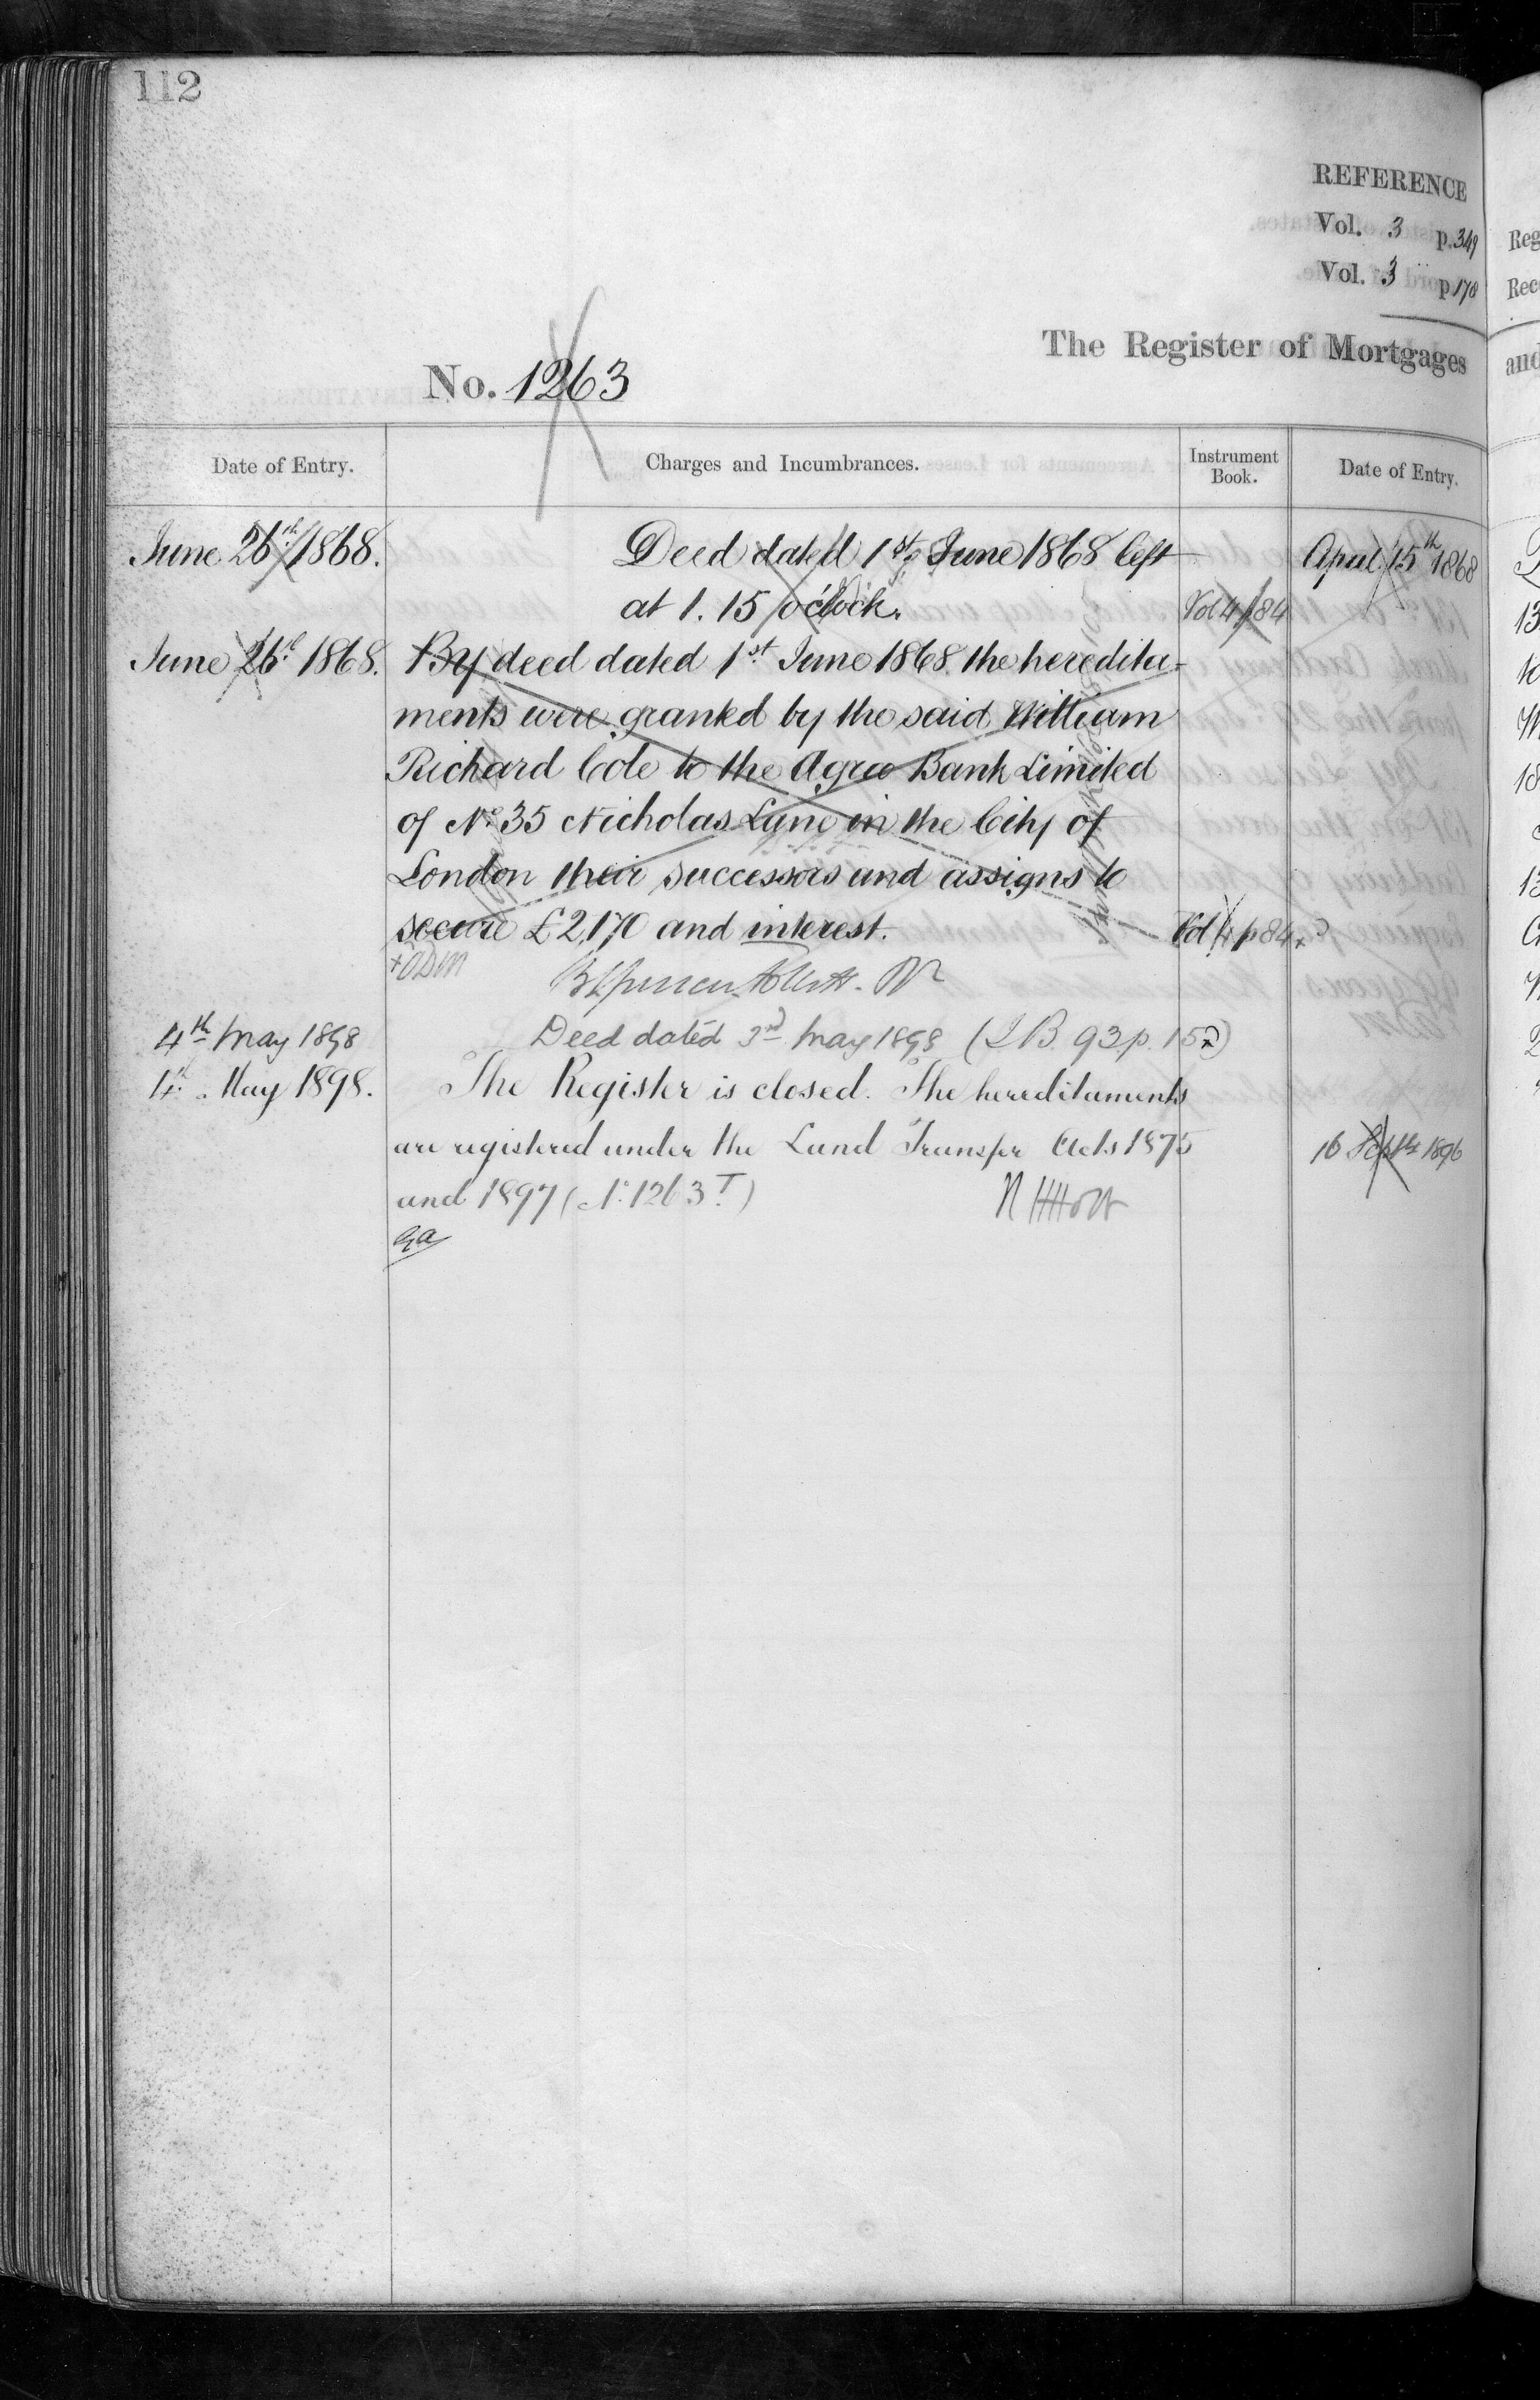 112
REFERENCE
Vol. 3 p. 349
Vol. 3 p 178
The Register of Mortgages
No. 1263
Date of Entry.
Charges and Incumbrances.
Instrument Book.
Date of Entry.
June 26th 1868. Deed dated 1st June 1868 left
April 15th 1868
at 1. 15 o'clock. Vol 4 p 84
June 26th 1868. By deed dated 1st June 1868 the heredita-
ments were granted by the said William
Richard Cole to the Agra Bank Limited
of No. 35 Nicholas Lane in the City of
London their successors and assigns to
secure £2,170 and interest. Vol 4 p 84
4th May 1898 Deed dated 3rd May 1898 (I B. 93 p. 152)
4th May 1898. The Register is closed. The hereditaments
are registered under the Land Transfer Acts 1875
16 Septr 1896
and 1897 (No. 1263T)